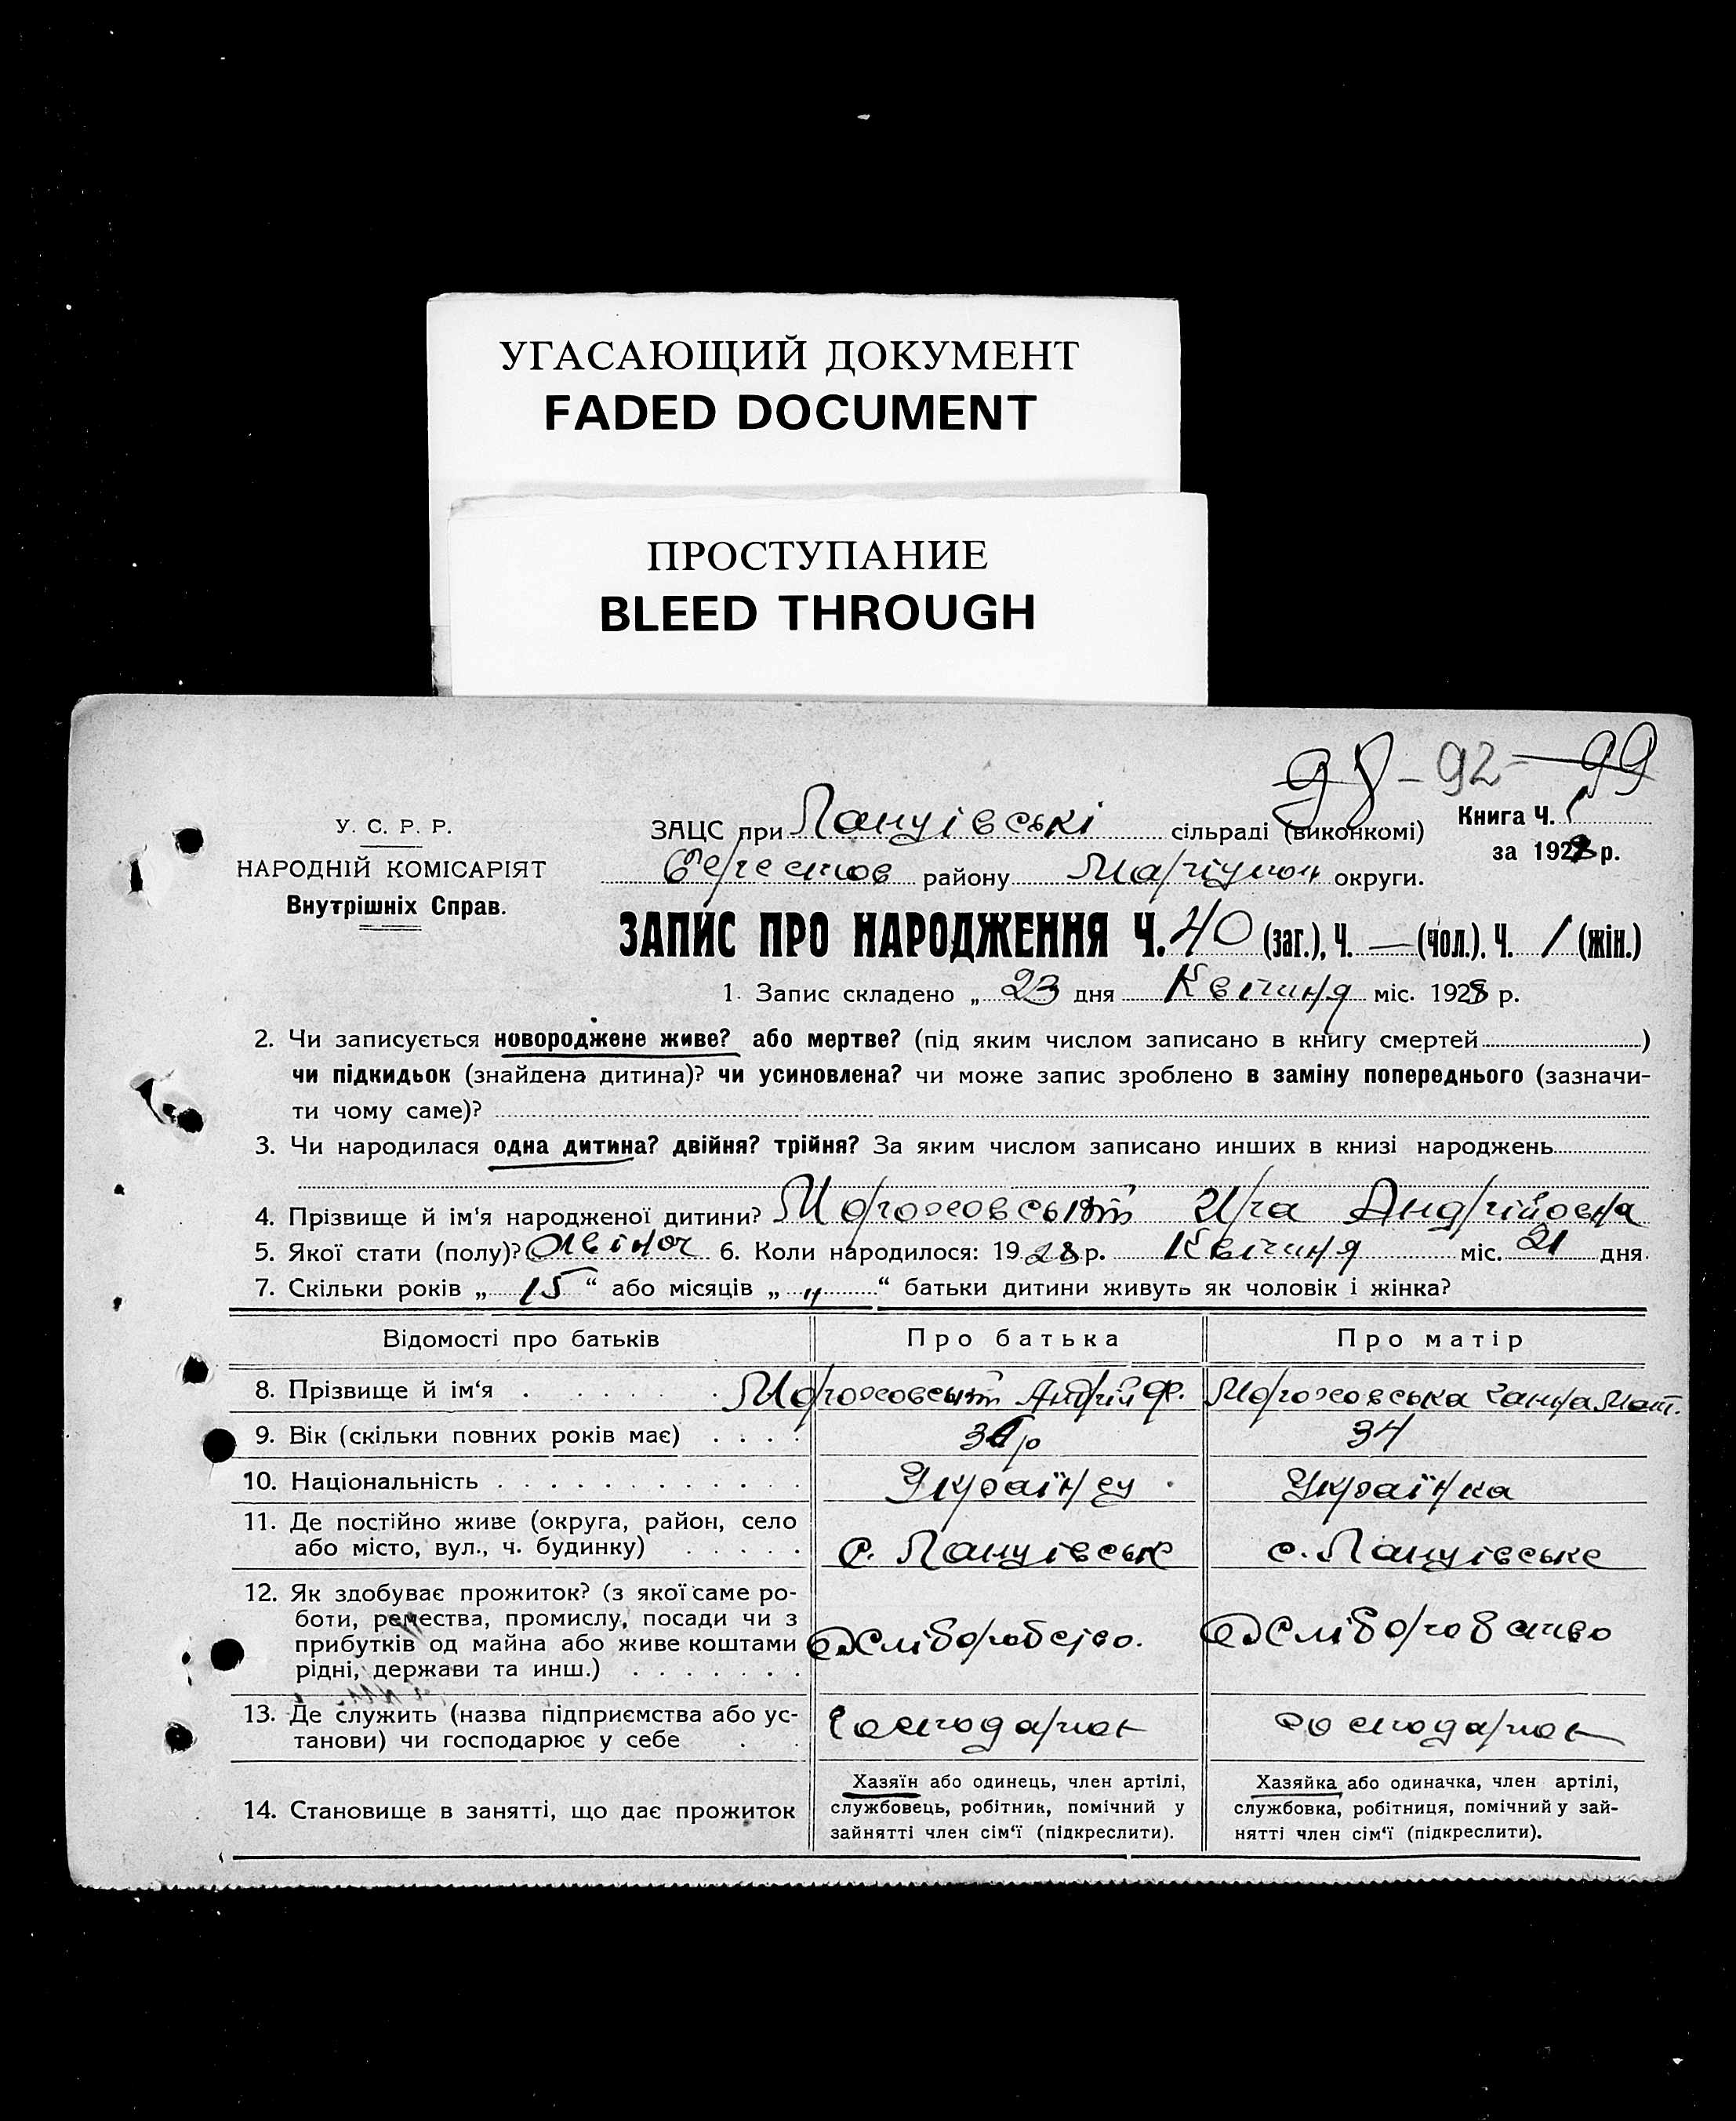 УГАСАЮЩИЙ ДОКУМЕНТ
FADED DOCUMENT
ПРОСТУПАНИЕ
BLEED THROUGH
98 – 92 – 99
У. С. Р. Р.
НАРОДНІЙ КОМІСАРІЯТ
Внутрішніх Справ.
ЗАЦС при сільраді (виконкомі)
району округи.
Книга Ч.
за 1928 р.
ЗАПИС ПРО НАРОДЖЕННЯ Ч. 40 (заг.), Ч. — (чол.). Ч. 1 (жін.)
1. Запис складено „ 23 дня Квітня міс. 1928 р.
2. Чи записується новороджене живе? або мертве? (під яким числом записано в книгу смертей)
чи підкидьок (знайдена дитина)? чи усиновлена? чи може запис зроблено в заміну попереднього (зазначи-
ти чому саме)?
3. Чи народилася одна дитина? двійня? трійня? За яким числом записано инших в книзі народжень
4. Прізвище й ім'я народженої дитини? Андрійовна
5. Якої стати (полу)? Жіноч 6. Коли народилося: 1928 р. Квітня міс. 21 дня.
7. Скільки років „ 15 “ або місяців „ " “ батьки дитини живуть як чоловік і жінка?
Відомості про батьків Про батька Про матір
8. Прізвище й ім'я Андрій Ф. Ганна Мат.
9. Вік (скільки повних років має) 34
10. Національність Українец Українка
11. Де постійно живе (округа, район, село
або місто, вул., ч. будинку) с. с.
12. Як здобуває прожиток? (з якої саме ро-
боти, ремества, промислу, посади чи з
прибутків од майна або живе коштами
рідні, держави та инш.) Хліборобство. Хліборобство
13. Де служить (назва підприємства або ус-
танови) чи господарює у себе
14. Становище в занятті, що дає прожиток
Хазяїн або одинець, член артілі,
службовець, робітник, помічний у
зайнятті член сім'ї (підкреслити).
Хазяйка або одиначка, член артілі,
службовка, робітниця, помічний у зай-
нятті член сім'ї (підкреслити).